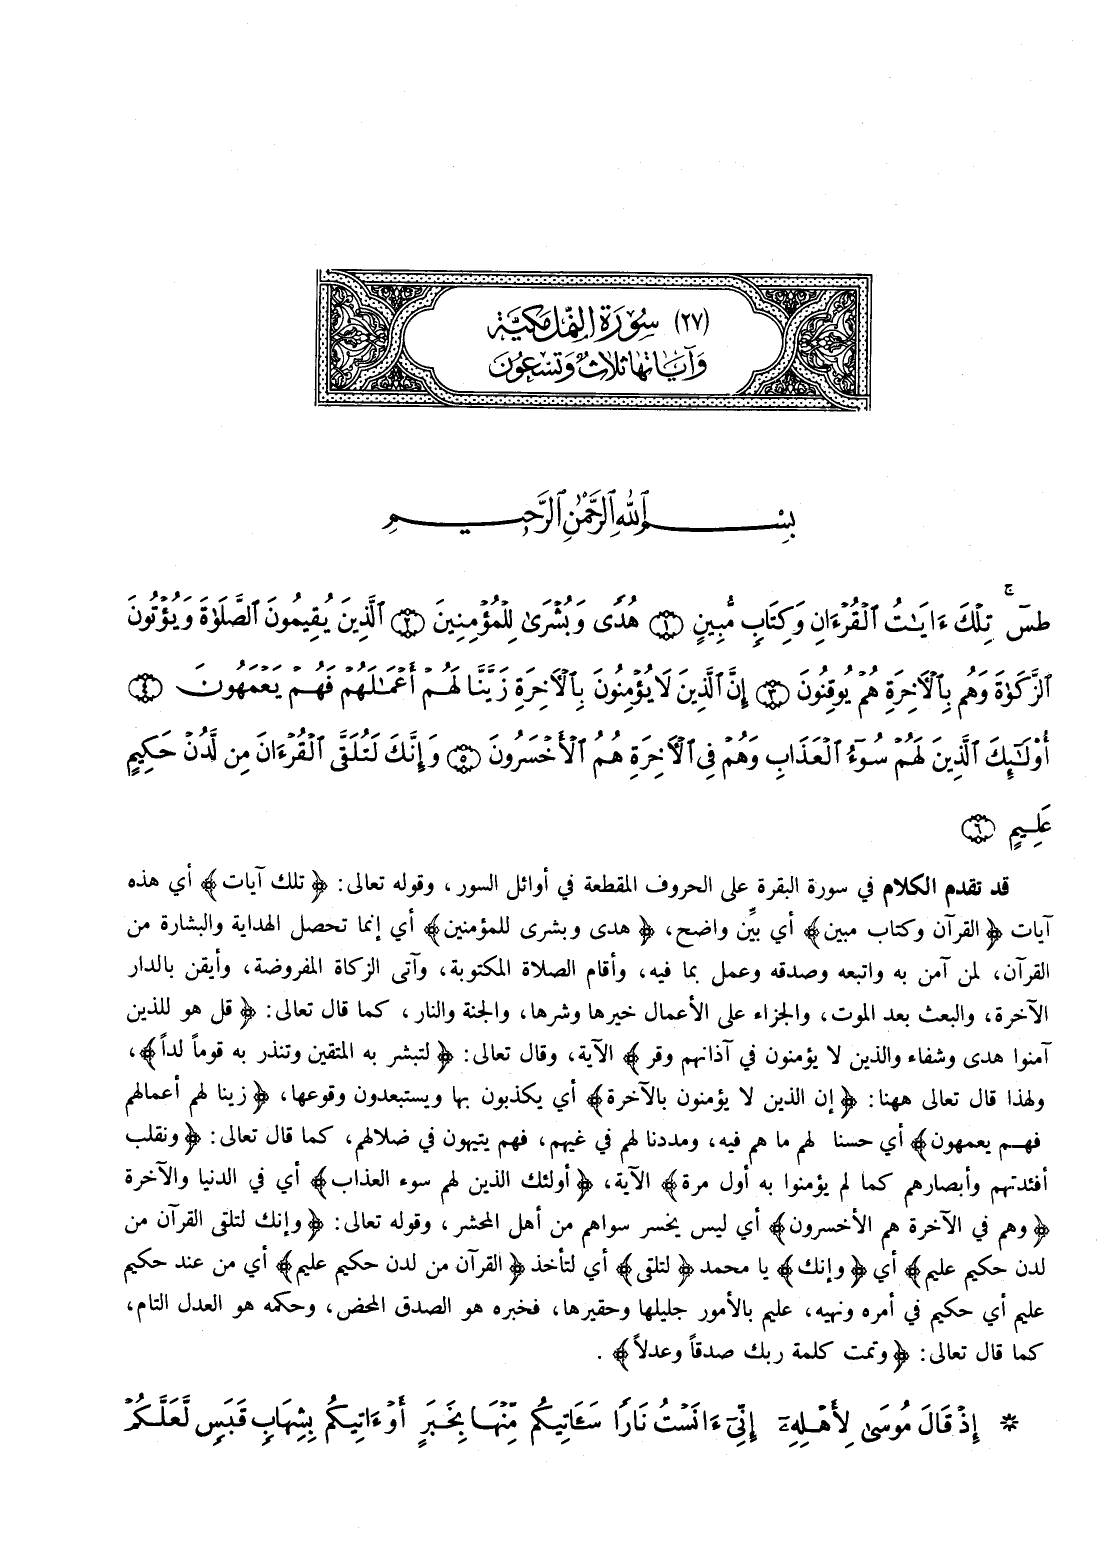 (٢٧) سُورَة النَّمل مَكيَّة
وَآيَاتهَا ثلاث وَتسْعون
بِسْمِ ٱللَّهِ ٱلرَّحْمَٰنِ ٱلرَّحِيمِ
طسٓ ۚ تِلْكَ ءَايَٰتُ ٱلْقُرْءَانِ وَكِتَابٍ مُّبِينٍ ﴿١﴾ هُدًى وَبُشْرَىٰ لِلْمُؤْمِنِينَ ﴿٢﴾ ٱلَّذِينَ يُقِيمُونَ ٱلصَّلَوٰةَ وَيُؤْتُونَ
ٱلزَّكَوٰةَ وَهُم بِٱلْأَخِرَةِ هُمْ يُوقِنُونَ ﴿٣﴾ إِنَّ ٱلَّذِينَ لَا يُؤْمِنُونَ بِٱلْأَخِرَةِ زَيَّنَّا لَهُمْ أَعْمَٰلَهُمْ فَهُمْ يَعْمَهُونَ ﴿٤﴾
أُوْلَٰٓئِكَ ٱلَّذِينَ لَهُمْ سُوٓءُ ٱلْعَذَابِ وَهُمْ فِى ٱلْأَخِرَةِ هُمُ ٱلْأَخْسَرُونَ ﴿٥﴾ وَإِنَّكَ لَتُلَقَّى ٱلْقُرْءَانَ مِن لَّدُنْ حَكِيمٍ
عَلِيمٍ ﴿٦﴾
قد تقدم الكلام في سورة البقرة على الحروف المقطعة في أوائل السور، وقوله تعالى: ﴿تلك آيات﴾ أي هذه
آيات ﴿القرآن وكتاب مبين﴾ أي بيِّن واضح، ﴿هدى وبشرى للمؤمنين﴾ أي إنما تحصل الهداية والبشارة من
القرآن، لمن آمن به واتبعه وصدقه وعمل بما فيه، وأقام الصلاة المكتوبة، وآتى الزكاة المفروضة، وأيقن بالدار
الآخرة، والبعث بعد الموت، والجزاء على الأعمال خيرها وشرها، والجنة والنار، كما قال تعالى: ﴿قل هو للذين
آمنوا هدى وشفاء والذين لا يؤمنون في آذانهم وقر﴾ الآية، وقال تعالى: ﴿لتبشر به المتقين وتنذر به قوماً لداً﴾،
ولهذا قال تعالى ههنا: ﴿إن الذين لا يؤمنون بالآخرة﴾ أي يكذبون بها ويستبعدون وقوعها، ﴿زينا لهم أعمالهم
فهم يعمهون﴾ أي حسنا لهم ما هم فيه، ومددنا لهم في غيهم، فهم يتيهون في ضلالهم، كما قال تعالى: ﴿ونقلب
أفئدتهم وأبصارهم كما لم يؤمنوا به أول مرة﴾ الآية، ﴿أولئك الذين لهم سوء العذاب﴾ أي في الدنيا والآخرة
﴿وهم في الآخرة هم الأخسرون﴾ أي ليس يخسر سواهم من أهل المحشر، وقوله تعالى: ﴿وإنك لتلقى القرآن من
لدن حكيم عليم﴾ أي ﴿وإنك﴾ يا محمد ﴿لتلقى﴾ أي لتأخذ ﴿القرآن من لدن حكيم عليم﴾ أي من عند حكيم
عليم أي حكيم في أمره ونهيه، عليم بالأمور جليلها وحقيرها، فخبره هو الصدق المحض، وحكمه هو العدل التام،
كما قال تعالى: ﴿وتمت كلمة ربك صدقاً وعدلاً﴾ .
* إِذْ قَالَ مُوسَىٰ لِأَهْلِهِۦٓ إِنِّىٓ ءَانَسْتُ نَارًا سَـَٔاتِيكُم مِّنْهَا بِخَبَرٍ أَوْ ءَاتِيكُم بِشِهَابٍ قَبَسٍ لَّعَلَّكُمْ